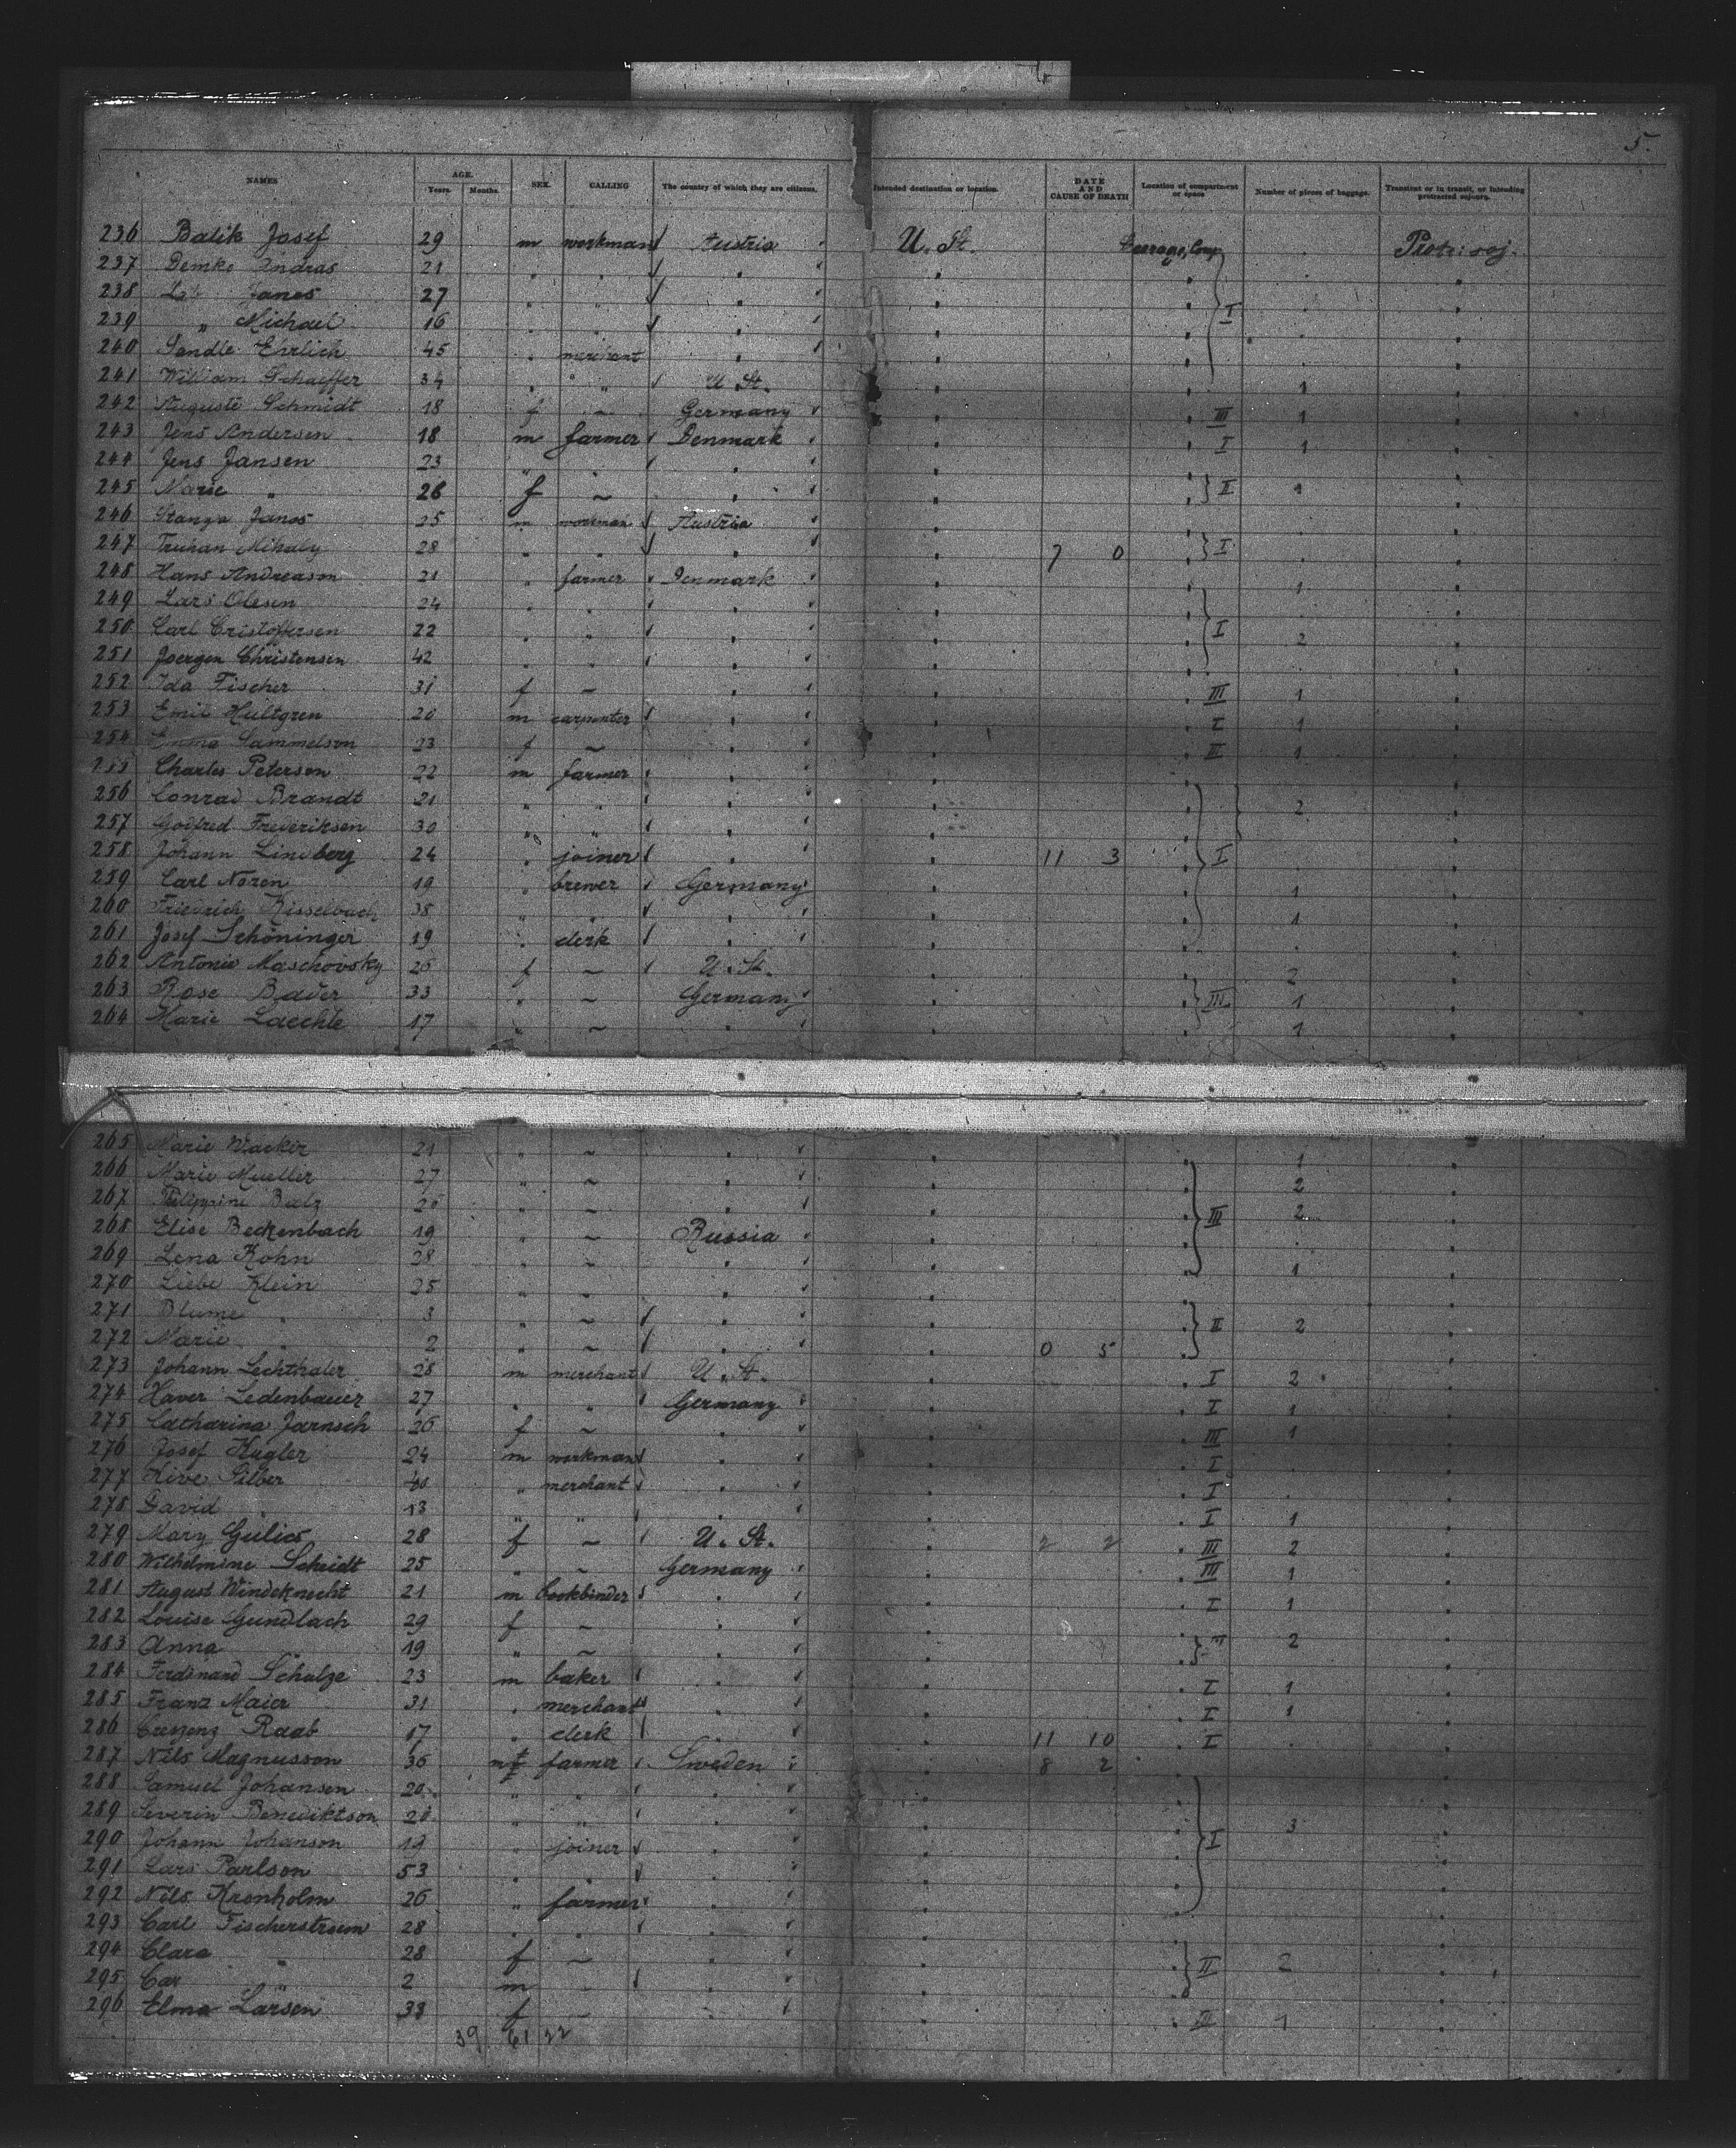 5.
NAMES AGE. Years. Months. SEX. CALLING The country of which they are citizens. Intended destination or location. DATE AND CAUSE OF DEATH Location of compartment or space Number of pieces of baggage. Transient or in transit, or intending protracted sojourn.
236 Balik Josef 29 m workman Austria U. St. Steerage, Comp. Protr. soj.
237 Demko Andras 21 " " " "
238 Janos 27 " " " " I
239 " Michael 16 " " " "
240 Sandle Ehrlich 45 " merchant " "
241 William Schaeffer 34 " " U. St. " 1
242 Auguste Schmidt 18 f ~ Germany " III 1
243 Jens Andersen 18 m farmer Denmark " I 1
244 Jens Jansen 23 " " " "
245 Marie " 26 f ~ " " II 1
246 Stanga Janos 25 m workman Austria "
247 Truhan Mihaly 28 " " " " 7 0 I
248 Hans Andreason 21 " farmer Denmark " 1
249 Lars Olesen 24 " " " "
250 Carl Cristoffersen 22 " " " " I 2
251 Joergen Christensen 42 " " " "
252 Ida Fischer 31 f ~ " " III 1
253 Emil Hultgren 20 m carpenter " " I 1
254 Emma Sammelson 23 f ~ " " III 1
255 Charles Peterson 22 m farmer " "
256 Conrad Brandt 21 " " " " 2
257 Godfred Frederiksen 30 " " " "
258 Johann Lindberg 24 " joiner " " 11 3 I
259 Carl Noren 19 " brewer Germany " 1
260 Friedrich Kisselbach 38 " " " " 1
261 Josef Schöninger 19 " clerk " "
262 Antonie Maschovsky 26 f ~ U. St. " 2
263 Rose Bader 33 " ~ Germany " III 1
264 Marie Laechle 17 " ~ " " 1
265 Marie Wacker 21 " ~ " " 1
266 Marie Mueller 27 " ~ " " 2
267 Philippine Balz " ~ " " III 2
268 Elise Beckenbach 19 " ~ Russia "
269 Lena Kohn 28 " ~ " " 1
270 Liebe Klein 25 " ~ " "
271 Blume " 3 " ~ " " II 2
272 Marie " 2 " ~ " " 0 5
273 Johann Lechthaler 28 m merchant U. St. " I 2
274 Xaver Ledenbauer 27 " " Germany " I 1
275 Catharina Jarnsch 26 f ~ " " III 1
276 Josef Kugler 24 m workman " " I
277 Hive Silber " merchant " " I
278 David " 13 " " " " I 1
279 Mary Gulics 28 f ~ U. St. " 2 2 III 2
280 Wilhelmine Scheidt 25 " ~ Germany " III 1
281 August Windeknecht 21 m bookbinder " " I 1
282 Louise Gundlach 29 f ~ " "
283 Anna " 19 " ~ " " III 2
284 Ferdinand Schulze 23 m baker " " I 1
285 Franz Maier 31 " merchant " " I 1
286 Creszenz Raab 17 " clerk " " 11 10 I
287 Nils Magnusson 36 m farmer Sweden " 8 2
288 Samuel Johansen 20 " " " "
289 Severin Benediktson 28 " " " " 3
290 Johann Johanson 19 " joiner " " I
291 Lars Parlson 53 " " " "
292 Nils Kronholm 26 " farmer " "
293 Carl Fischerstroem 28 " " " "
294 Clara " 28 f ~ " " II 2
295 Car " 2 m " "
296 Elma Larsen 33 f ~ " " III 1
39 61 22